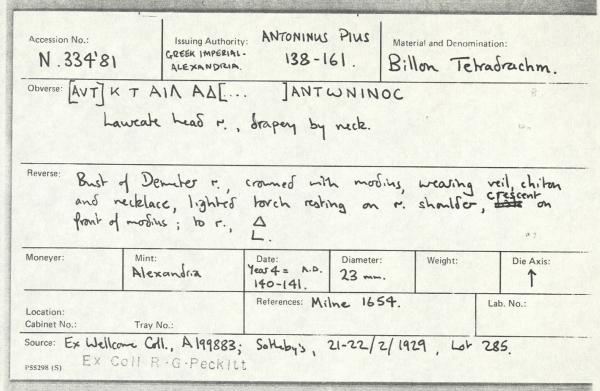 Accession No.: N.334'81
Issuing Authority: ANTONINUS PIUS
GREEK IMPERIAL- 138-161.
ALEXANDRIA.
Material and Denomination:
Billon Tetradrachm.
Obverse: [AVT] K T AIΛ AΔ[... ]ANTωNINOC
Laureate head r., drapery by neck.
Reverse: Bust of Demeter r., crowned with modius, wearing veil, chiton
and necklace, lighted torch resting on r. shoulder, crescent on
front of modius; to r., Δ
L.
Moneyer:
Mint: Alexandria
Date: Year 4 = A.D.
140-141.
Diameter: 23 mm.
Weight:
Die Axis: ↑
Location:
Cabinet No.: Tray No.:
References: Milne 1654.
Lab. No.:
Source: Ex Wellcome Coll., A199883; Sotheby's, 21-22/2/1929, Lot 285.
P55298 (S) Ex Coll R.G.Peckitt